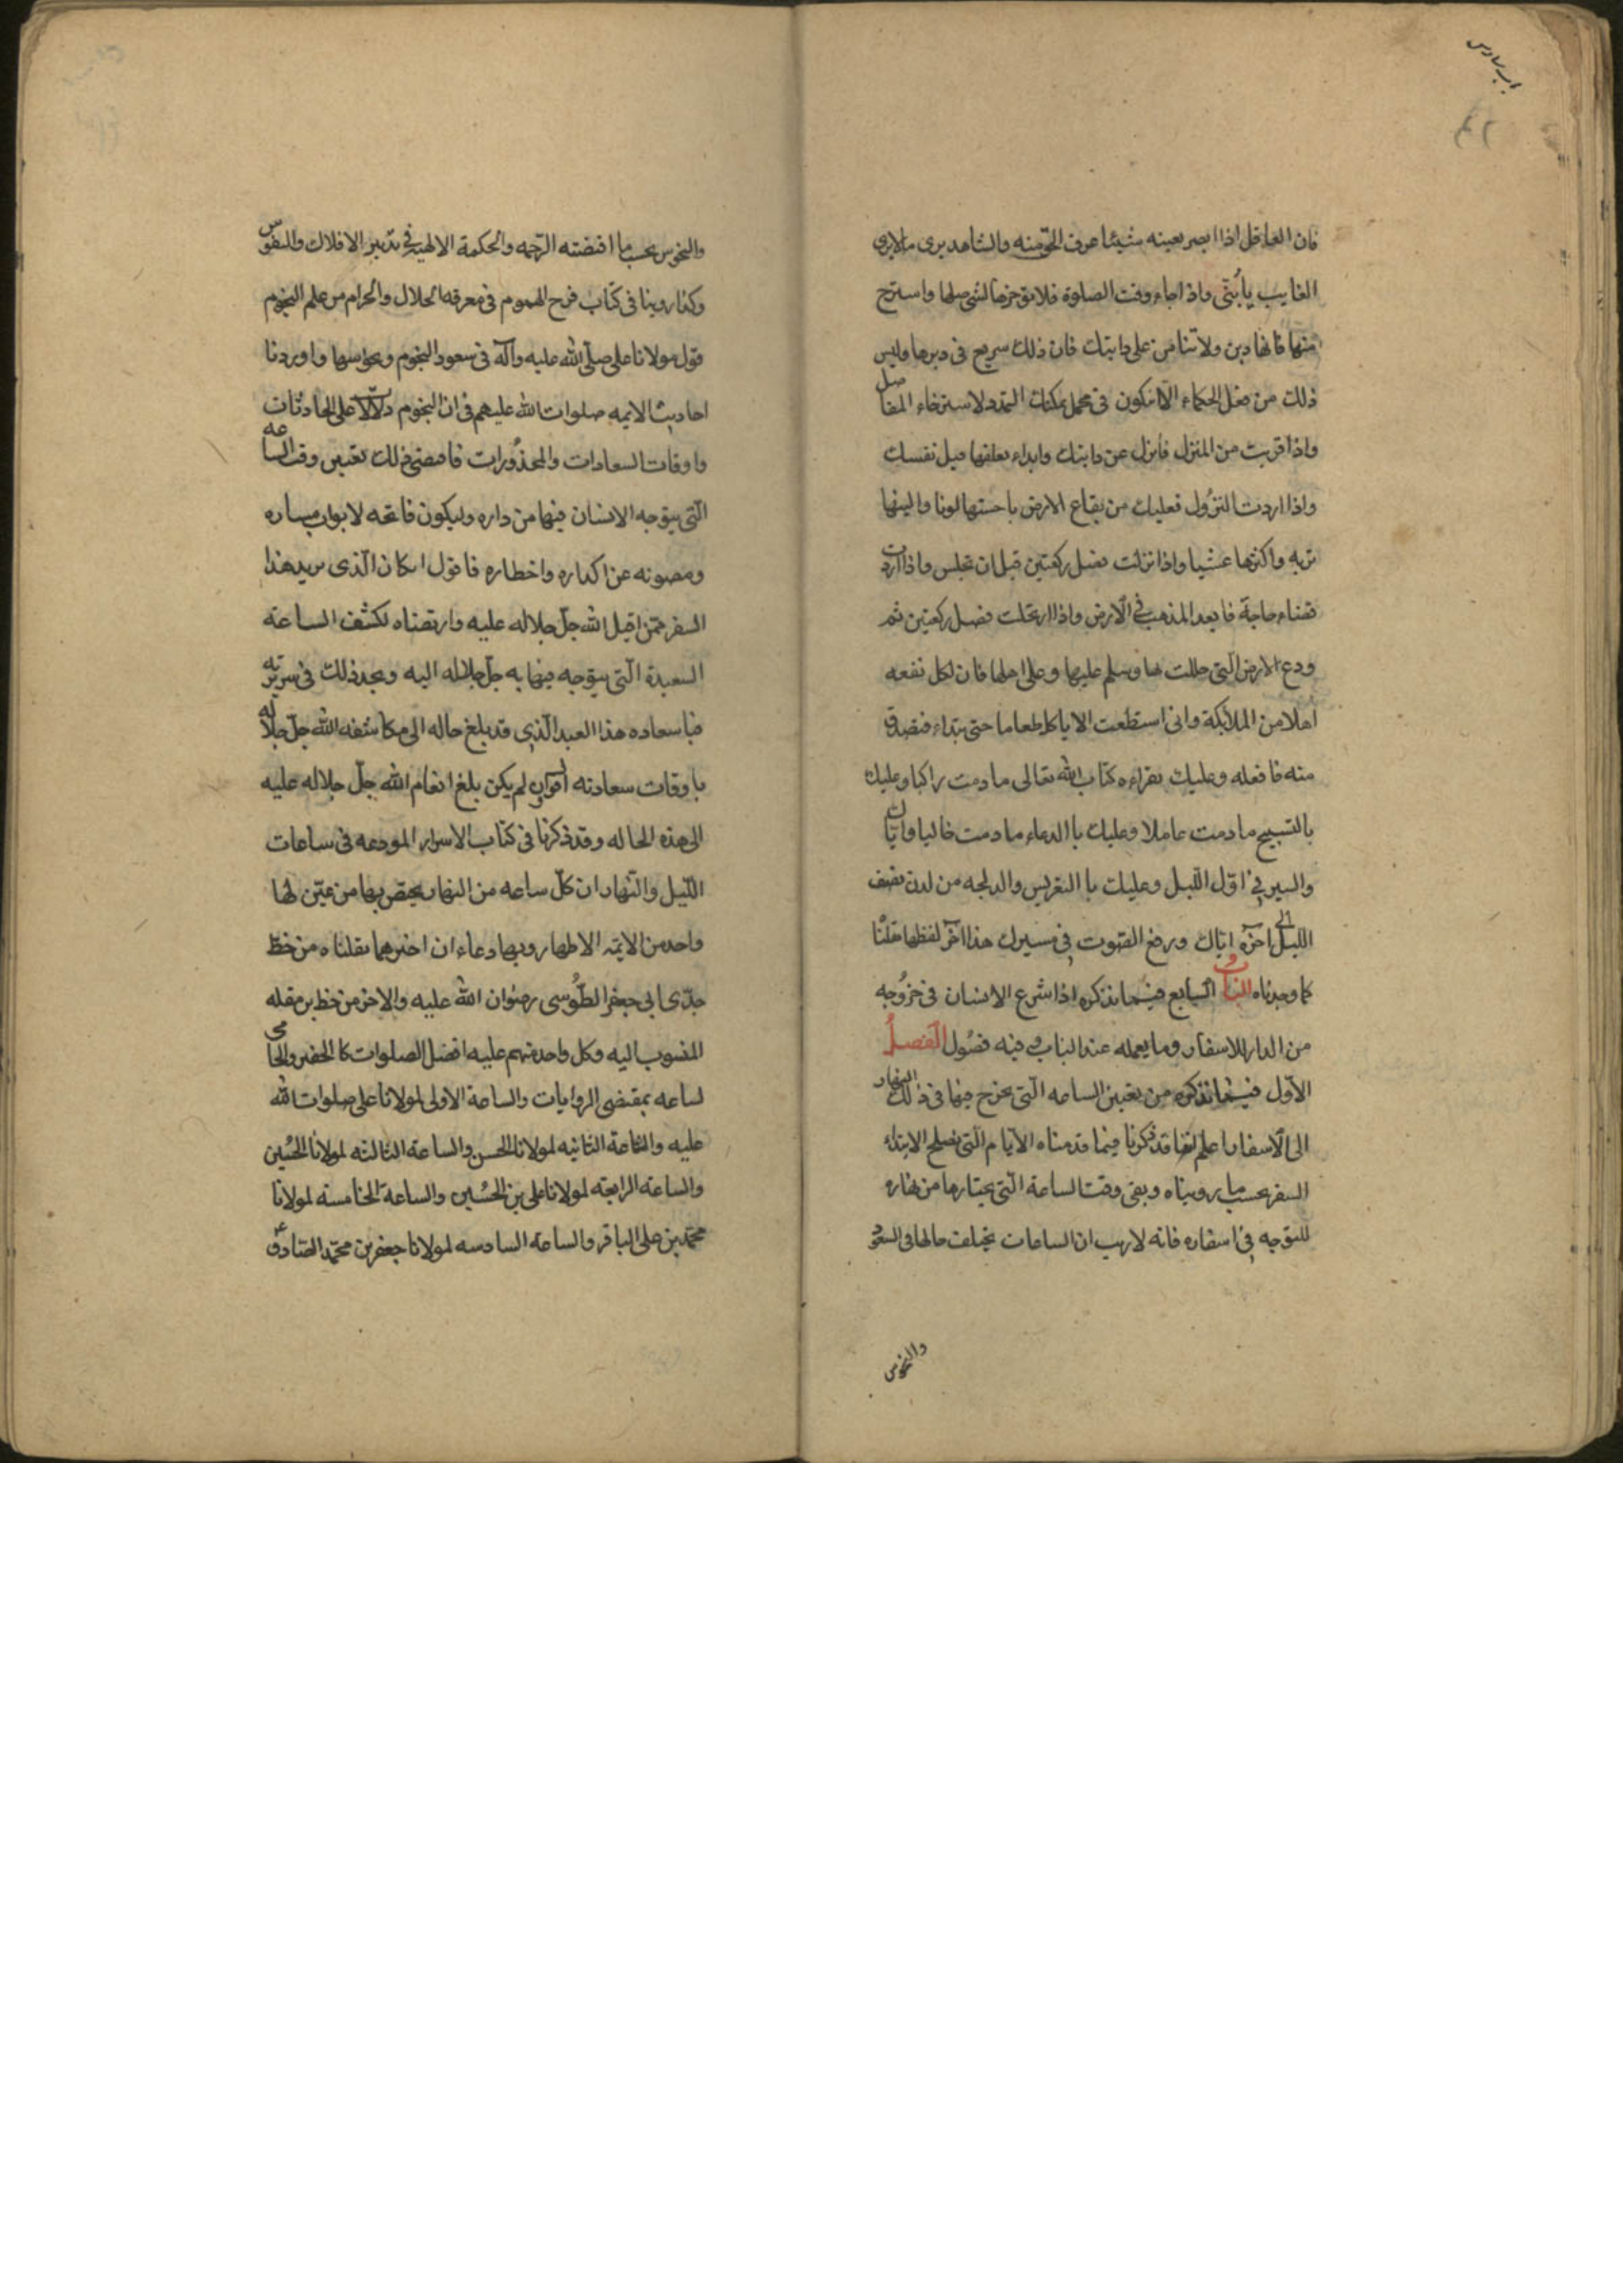 باب سادس
فان العاقل اذا ابصر بعينه شيئا عرف الحق منه والشاهد يرى ما لا يرى
الغايب يا بنى واذا جاء وقت الصلوة فلا تؤخرها لشى صلها واسترح
منها فانها دين ولا تنامن على دابتك فان ذلك سريع فى دبرها وليس
ذلك من فعل الحكماء الا ان تكون فى محمل يمكنك التمدد لاسترخاء المفاصل
واذا قربت من المنزل فانزل عن دابتك وابداء بعلفها قبل نفسك
واذا اردت النزول فعليك من بقاع الارض باحسنها لونا والينها
تربه واكثرها عشبا واذا نزلت فصل ركعتين قبل ان تجلس واذا اردت
قضاء حاجة فابعد المذهب فى الارض واذا ارتحلت فصل ركعتين ثم
ودع الارض التى حللت بها وسلم عليها وعلى اهلها فان لكل بقعه
اهلا من الملائكة وان استطعت الا ياكل طعاما حتى تبداء فتصدق
منه فافعله وعليك بقراءه كتاب الله تعالى ما دمت راكبا وعليك
بالتسبيح ما دمت عاملا وعليك باالدعاء ما دمت خاليا واياك
والسير فى اول الليل وعليك باالتعريس والدلجه من لدن نصف
الليل الى اخره واياك ورفع الصوت فى مسيرك هذا اخر لفظها نقلنا
كما وجدناه الباب السابع فيما نذكره اذا شرع الانسان فى خروجه
من الدار للاسفار وما يعمله عند الباب وفيه فصول الفصل
الاول فيما نذكره من تعيين الساعه التى يخرج فيها فى ذلك النهار
الى الاسفار اعلم اننا قد ذكرنا فيما قدمناه الايام التى تصلح الابتداء
السفر بحسب ما رويناه وبقى وقت الساعة التى يختارها من نهاره
للتوجه فى اسفاره فانه لا ريب ان الساعات يختلف حالها فى السعود
والنحوس
والنحوس بحسب ما اقتضته الرحمه والحكمة الالهيه فى تدبير الافلاك والنفوس
وكنا روينا فى كتاب فرج الهموم فى معرفه الحلال والحرام من علم النجوم
قول مولانا على صلى الله عليه وآله فى سعود النجوم ونحوسها واوردنا
احاديث الايمه صلوات الله عليهم فى ان النجوم دلالات على الحادثات
واوقات السعادات والمحذورات فاقتضى ذلك تعيين وقت الساعه
التى يتوجه الانسان فيها من داره وليكون فاتحه لابواب مساره
ومصونه عن اكداره واخطاره فاقول ان كان الذى يريد هذا
السفر ممن اقبل الله جل جلاله عليه وارتضاه لكشف الساعة
السعيدة التى يتوجه فيها به جل جلاله اليه ويجد ذلك فى سريرته
فيا سعاده هذا العبد الذى قد بلغ حاله الى مكاشفه الله جل جلاله
باوقات سعادته وان لم يكن بلغ انعام الله جل جلاله عليه
الى هذه الحاله وقد ذكرنا فى كتاب الاسرار المودعه فى ساعات
الليل والنهار ان كل ساعه من النهار يختص بها من عين لها
واحد من الايمه الاطهار وبها دعاء ان احدهما نقلناه من خط
جدى ابى جعفر الطوسى رضوان الله عليه والاخر من خط بن مقله
المنسوب اليه وكل واحد منهم عليه افضل الصلوات كا الخفير والحامى
لساعه بمقتضى الروايات والساعة الاولى لمولانا على صلوات الله
عليه والساعة الثانيه لمولانا الحسن والساعة الثالثه لمولانا الحسين
والساعه الرابعه لمولانا على بن الحسين والساعة الخامسه لمولانا
محمد بن على الباقر والساعة السادسه لمولانا جعفر بن محمد الصادق ع